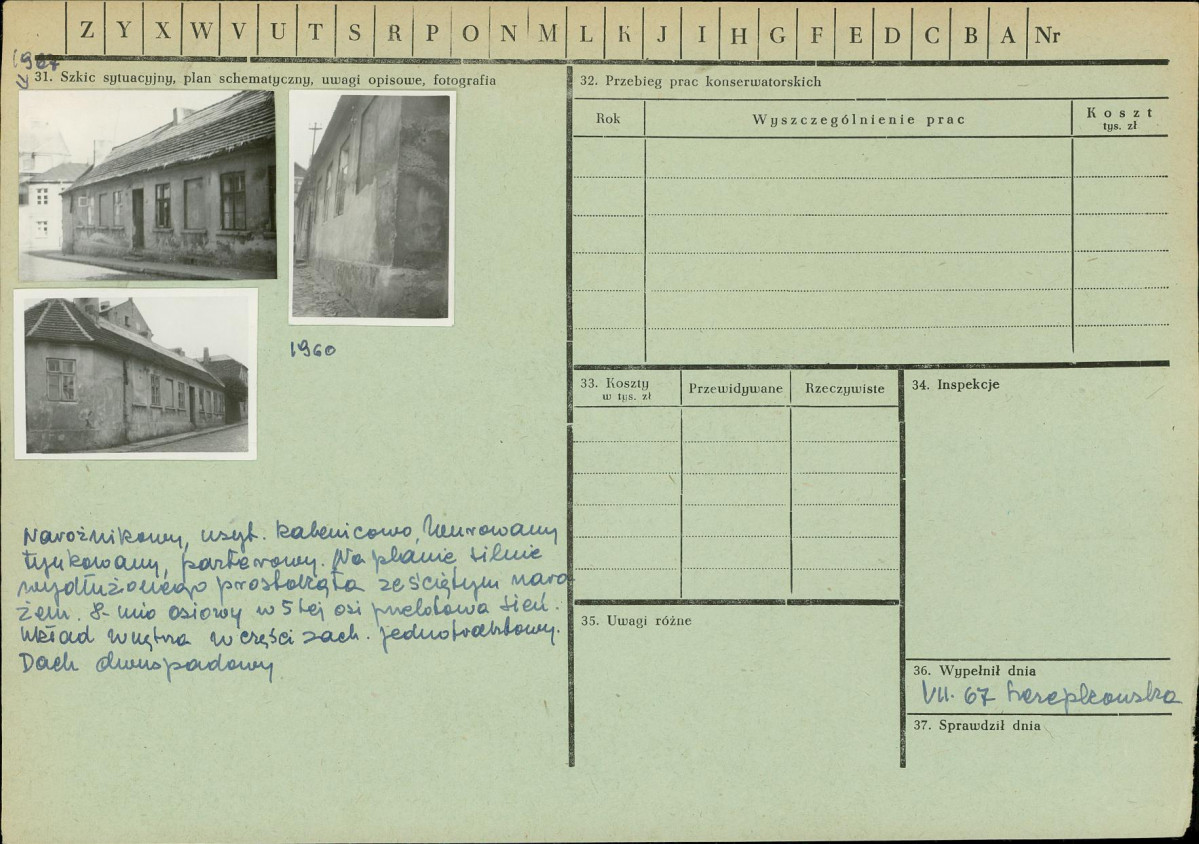 Z Y X W V U T S R P O N M L K J I H G F E D C B A Nr
31. Szkic sytuacyjny, plan schematyczny, uwagi opisowe, fotografia
1960
Narożnikowy, usyt. kalenicowo, murowany
tynkowany, parterowy. Na planie silnie
wydłużonego prostokąta ze ściętym naro-
żem. 8-mio osiowy w 5tej osi przelotowa sień.
Układ wnętrza w części zach. jednotraktowy.
Dach dwuspadowy
32. Przebieg prac konserwatorskich
Rok Wyszczególnienie prac Koszt
tys. zł
33. Koszty Przewidywane Rzeczywiste
w tys. zł
34. Inspekcje
35. Uwagi różne
36. Wypełnił dnia
VII. 67
37. Sprawdził dnia